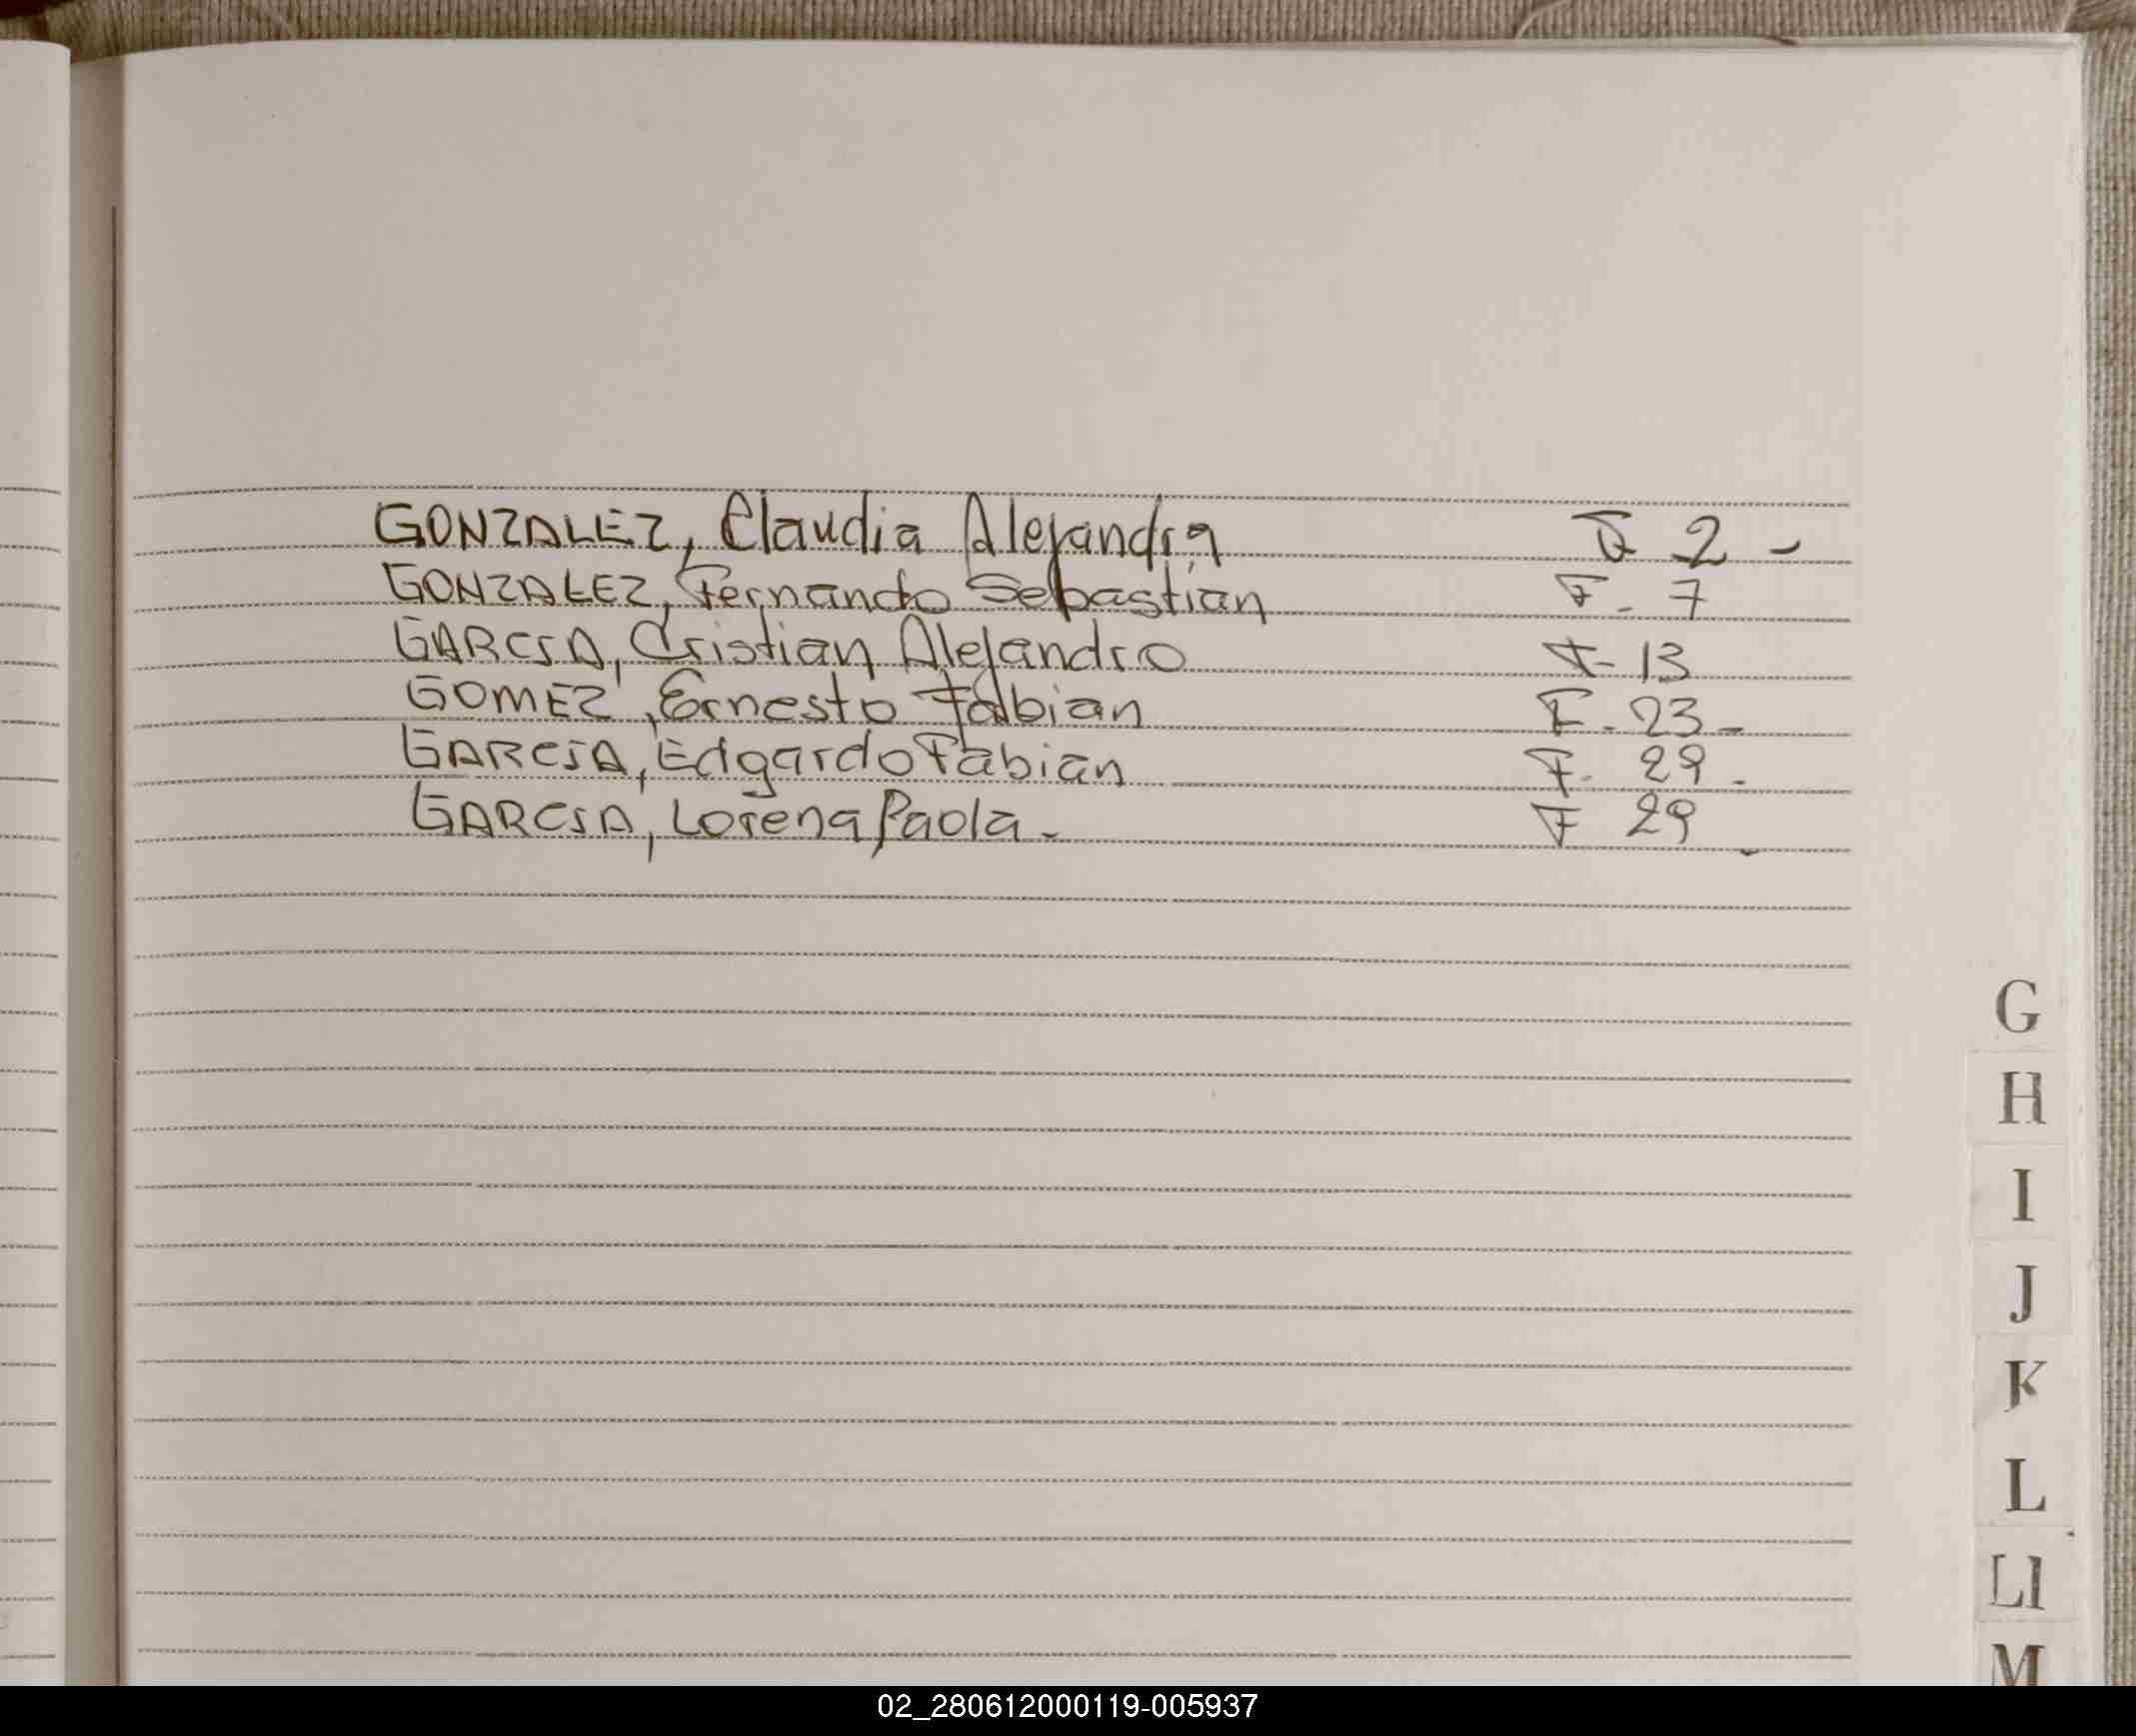 GONZALEZ, Claudia Alejandra F 2 -
GONZALEZ, Fernando Sebastian F. 7
GARCIA, Cristian Alejandro F- 13
GOMEZ, Ernesto Fabian F. 23-
GARCIA, Edgardo Fabian F. 29.
GARCIA, Lorena Paola. F 29
G
H
I
J
K
L
Ll
M
02_280612000119-005937